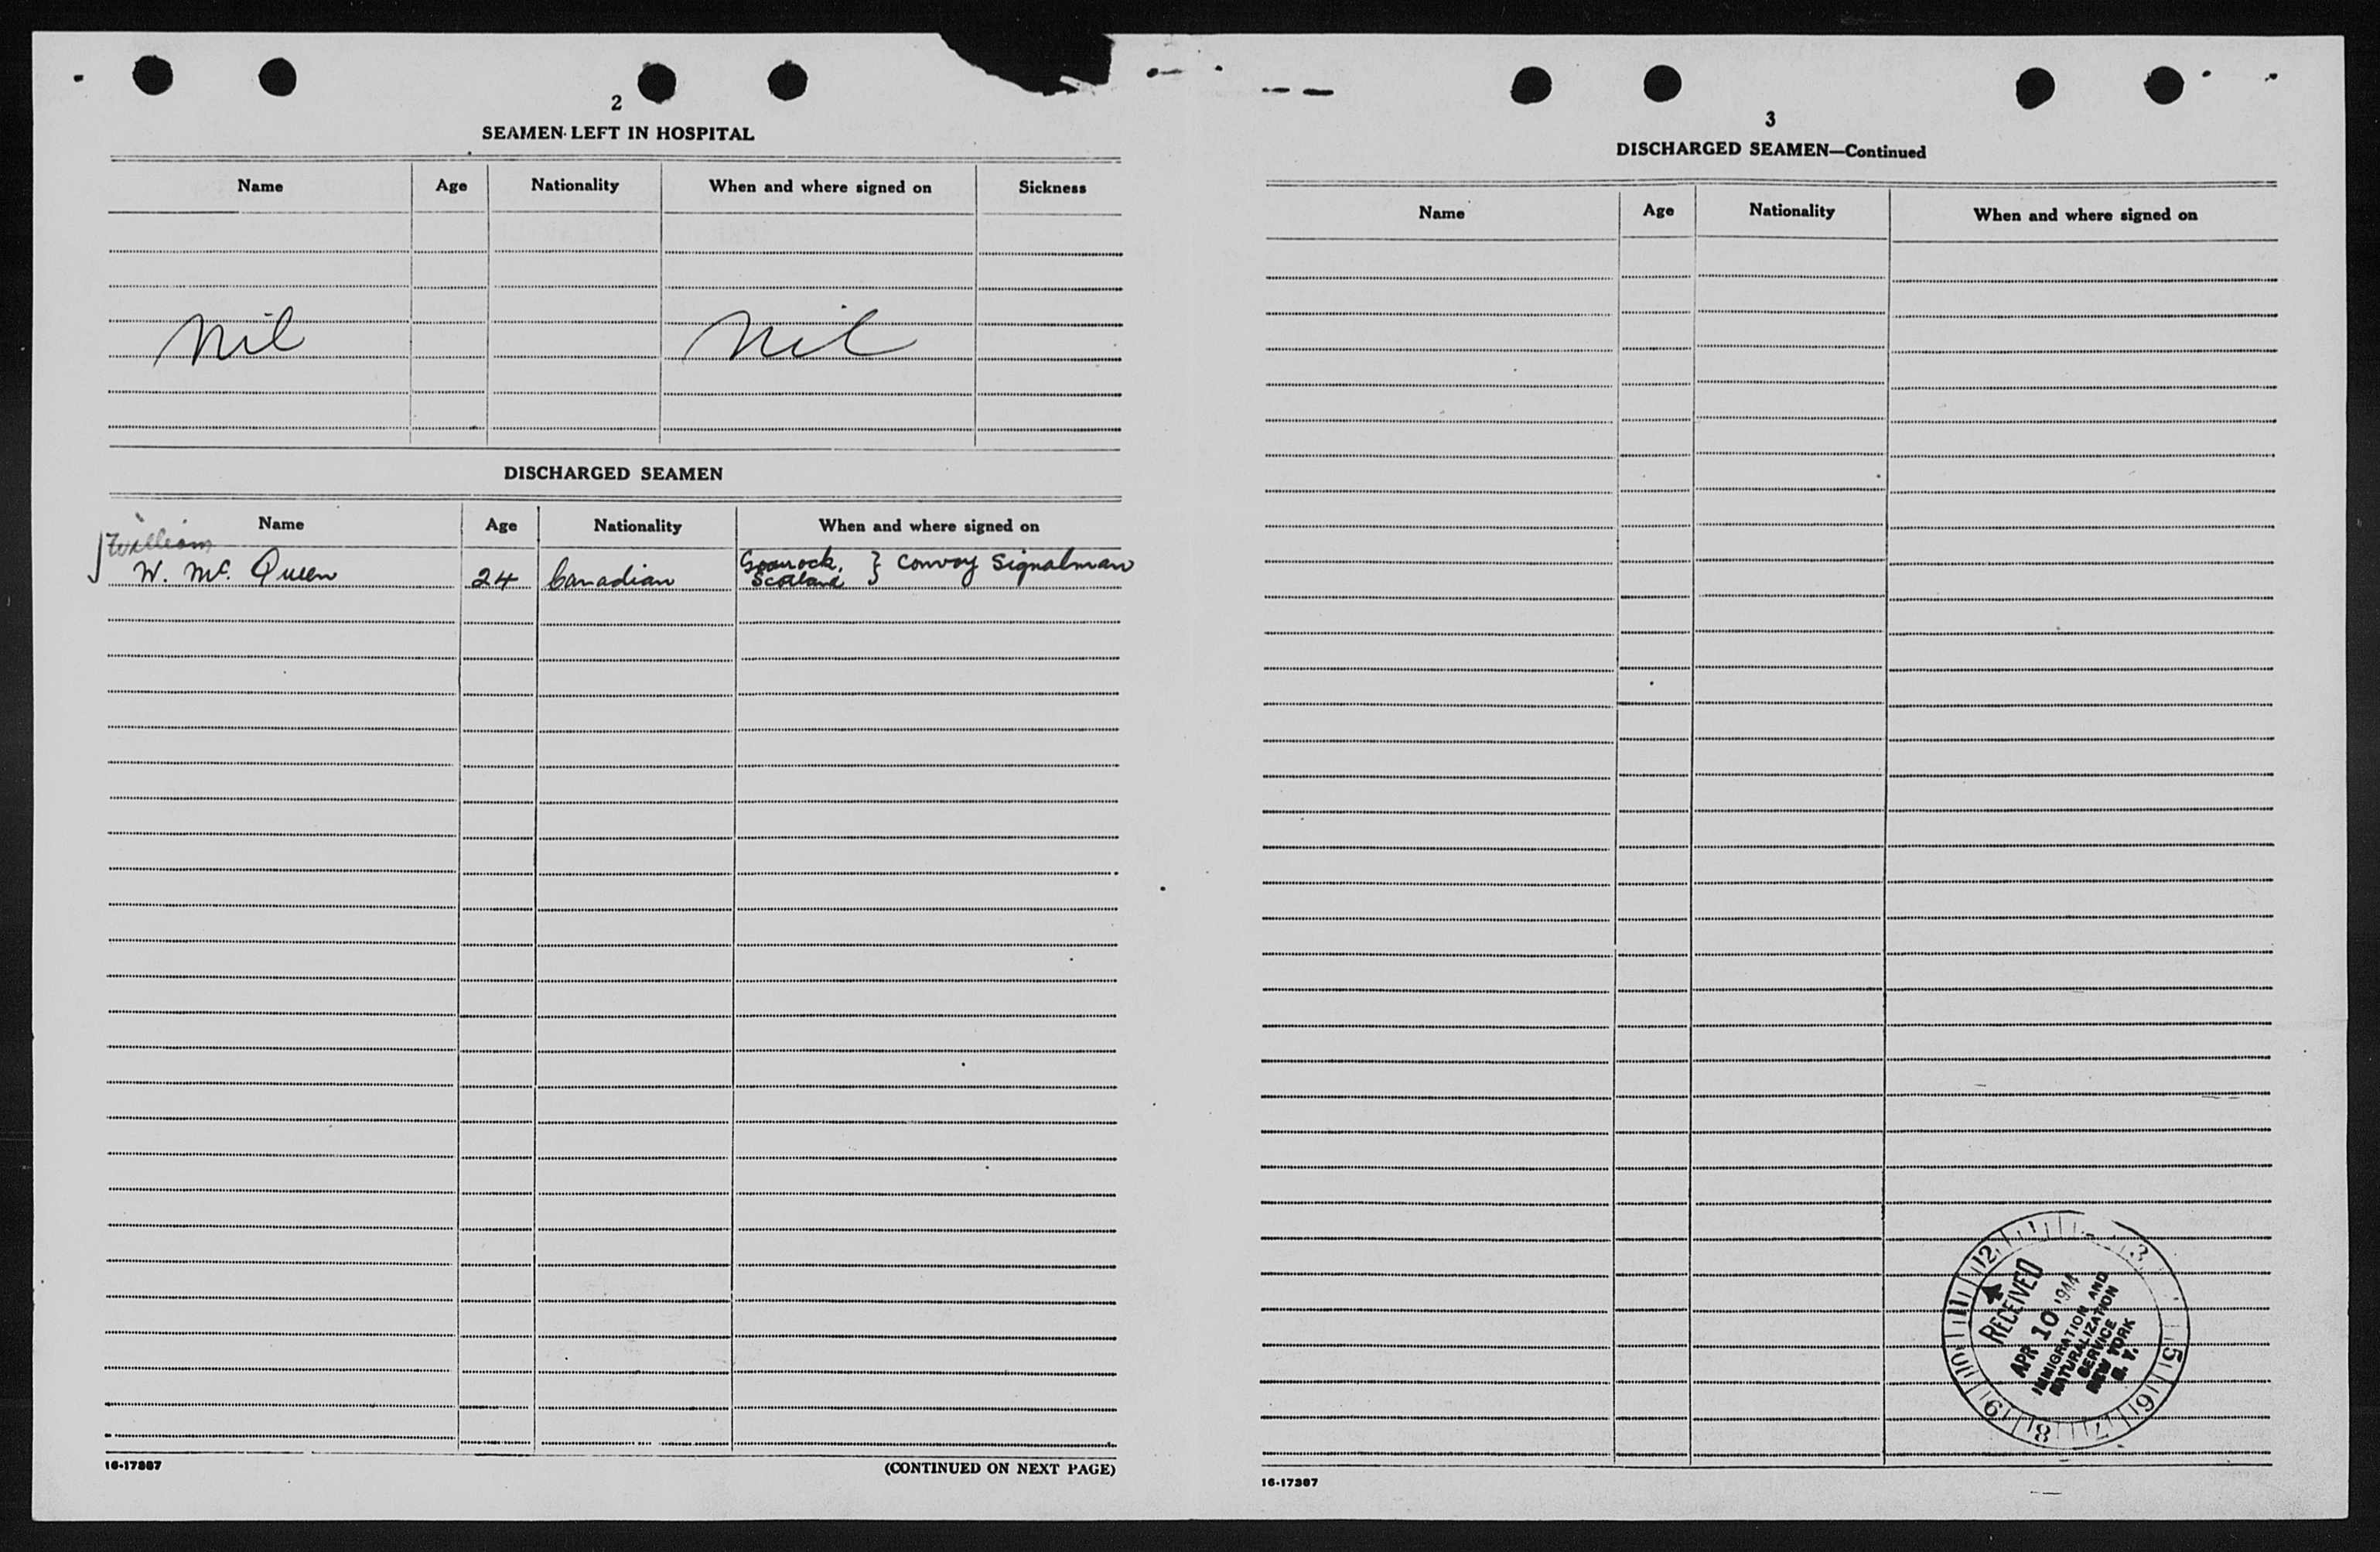 2
SEAMEN LEFT IN HOSPITAL
Name Age Nationality When and where signed on Sickness
Nil Nil
DISCHARGED SEAMEN
Name Age Nationality When and where signed on
William
W. Mc. Queen 24 Canadian Gourock, Scotland } Convoy Signalman
16-17387
(CONTINUED ON NEXT PAGE)
3
DISCHARGED SEAMEN—Continued
Name Age Nationality When and where signed on
12 3 5 6 7 8 9 10 11
RECEIVED
APR 10 1944
IMMIGRATION AND
NATURALIZATION
SERVICE
NEW YORK
N. Y.
16-17387